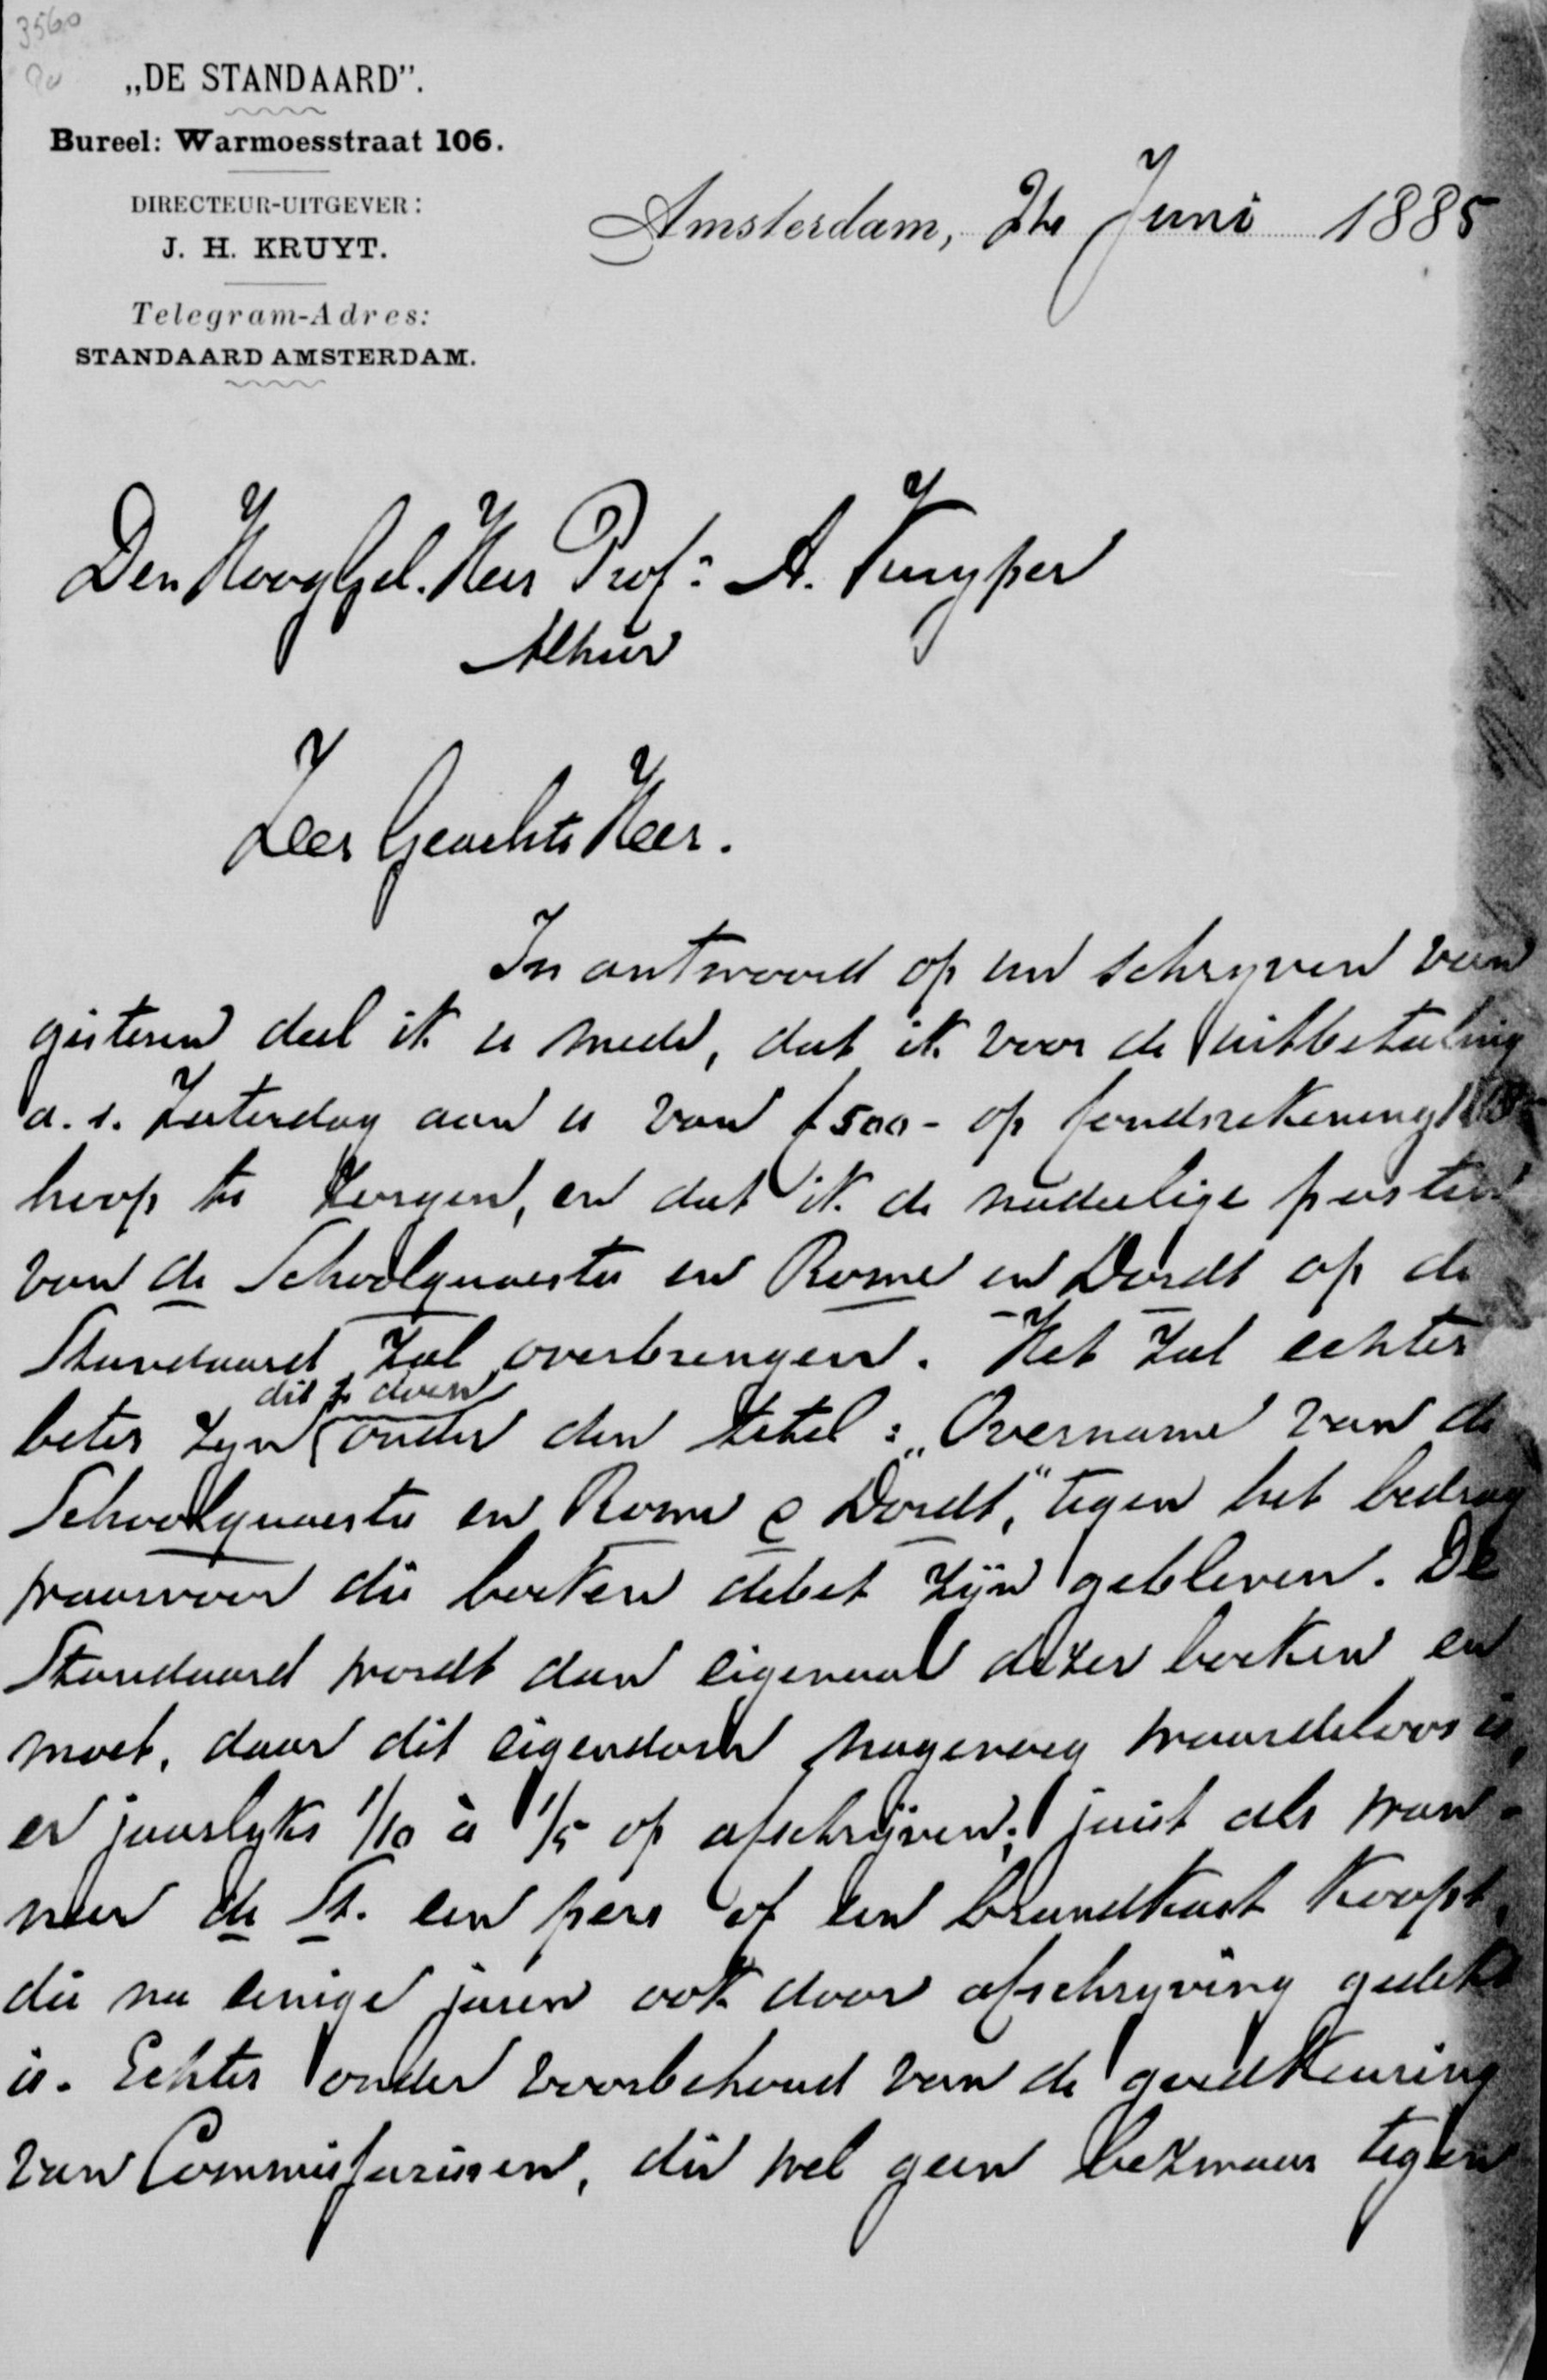 3560
„DE STANDAARD”.
Bureel: Warmoesstraat 106.
DIRECTEUR-UITGEVER:
J. H. KRUYT.
Telegram-Adres:
STANDAARD AMSTERDAM.
Amsterdam, Juni 1885
Den HoogGel. Heer Prof: A. Kuyper
Alhier
Zeer Geachte Heer.
In antwoord op uw schryven van
gisteren deel ik u mede, dat ik voor de uitbetaling
a. s. Zaterdag aan u van f 500- op fondsrekening
hoop te zorgen, en dat ik de nadeelige posten
van de Schoolquaestie en Rome en Dordt op de
Standaard zal overbrengen. Het zal echter
beter zyn dit te doen onder den titel: „Overname van de
Schoolquaestie en Rome e Dordt," tegen het bedrag
waarvoor die boeken debet zijn gebleven. De
Standaard wordt dan eigenaar dezer boeken en
moet, daar dit eigendom nagenoeg waardeloos is,
er jaarlyks 1/10 à 1/5 op afschrijven; juist als wan-
neer de St. een pers of een brandkast koopt,
die na eenige jaren ook door afschryving gedekt
is. Echter onder voorbehoud van de goedkeuring
van Commissarissen, die wel geen bezwaar tegen